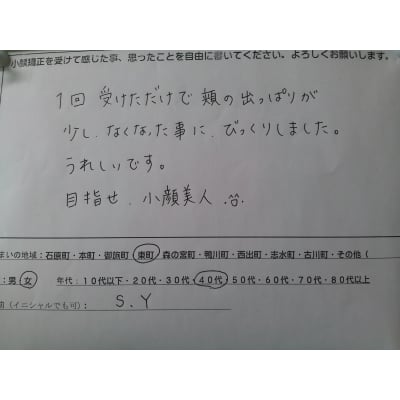 小顔矯正を受けて感じた事、思ったことを自由に書いてください。よろしくお願いします。
1回 受けただけで 頬の出っぱりが
少し、なくなった事に、びっくりしました。
うれしいです。
目指せ、小顔美人
まいの地域：石原町・本町・御旅町・東町・森の宮町・鴨川町・西出町・志水町・古川町・その他（
：男・女 年代：10代以下・20代・30代・40代・50代・60代・70代・80代以上
（イニシャルでも可）： S.Y